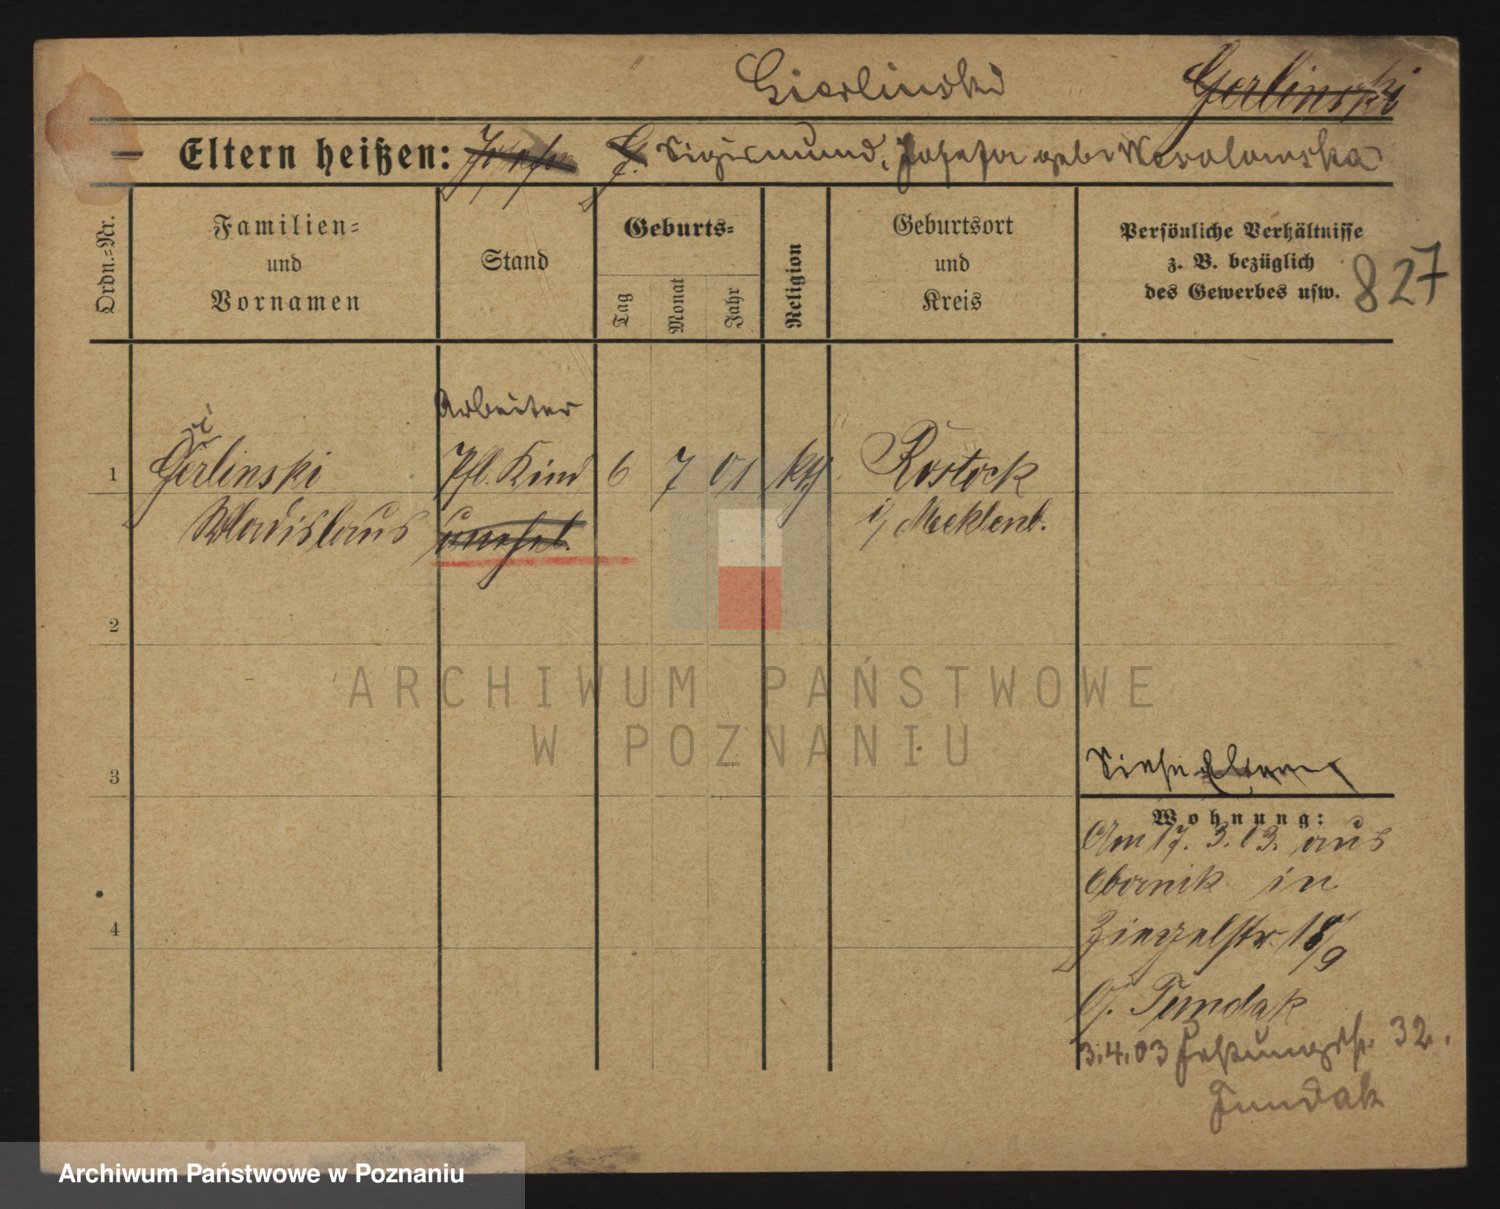 Gierlinski Gerlinski
Eltern heißen: Josefa G. Sigismund, Josefa geb. Kowalowska
Ordn.-Nr.
Familien-
und
Vornamen
Stand
Geburts-
Tag
Monat
Jahr
Religion
Geburtsort
und
Kreis
Persönliche Verhältnisse
z. B. bezüglich
des Gewerbes usw.
827
Arbeiter
1 Gierlinski Pfl. Kind 6 7 01 kth Rostock
Wladislaus unehel. i/ Mecklenb.
2
3
4
Siehe Eltern
Wohnung:
Am 17. 3. 03. aus
Obornik in
Ziegelstr. 18/9
b/. Tundak
3.4.03 Festungstr. 32.
Tundak
ARCHIWUM PAŃSTWOWE
W POZNANIU
Archiwum Państwowe w Poznaniu